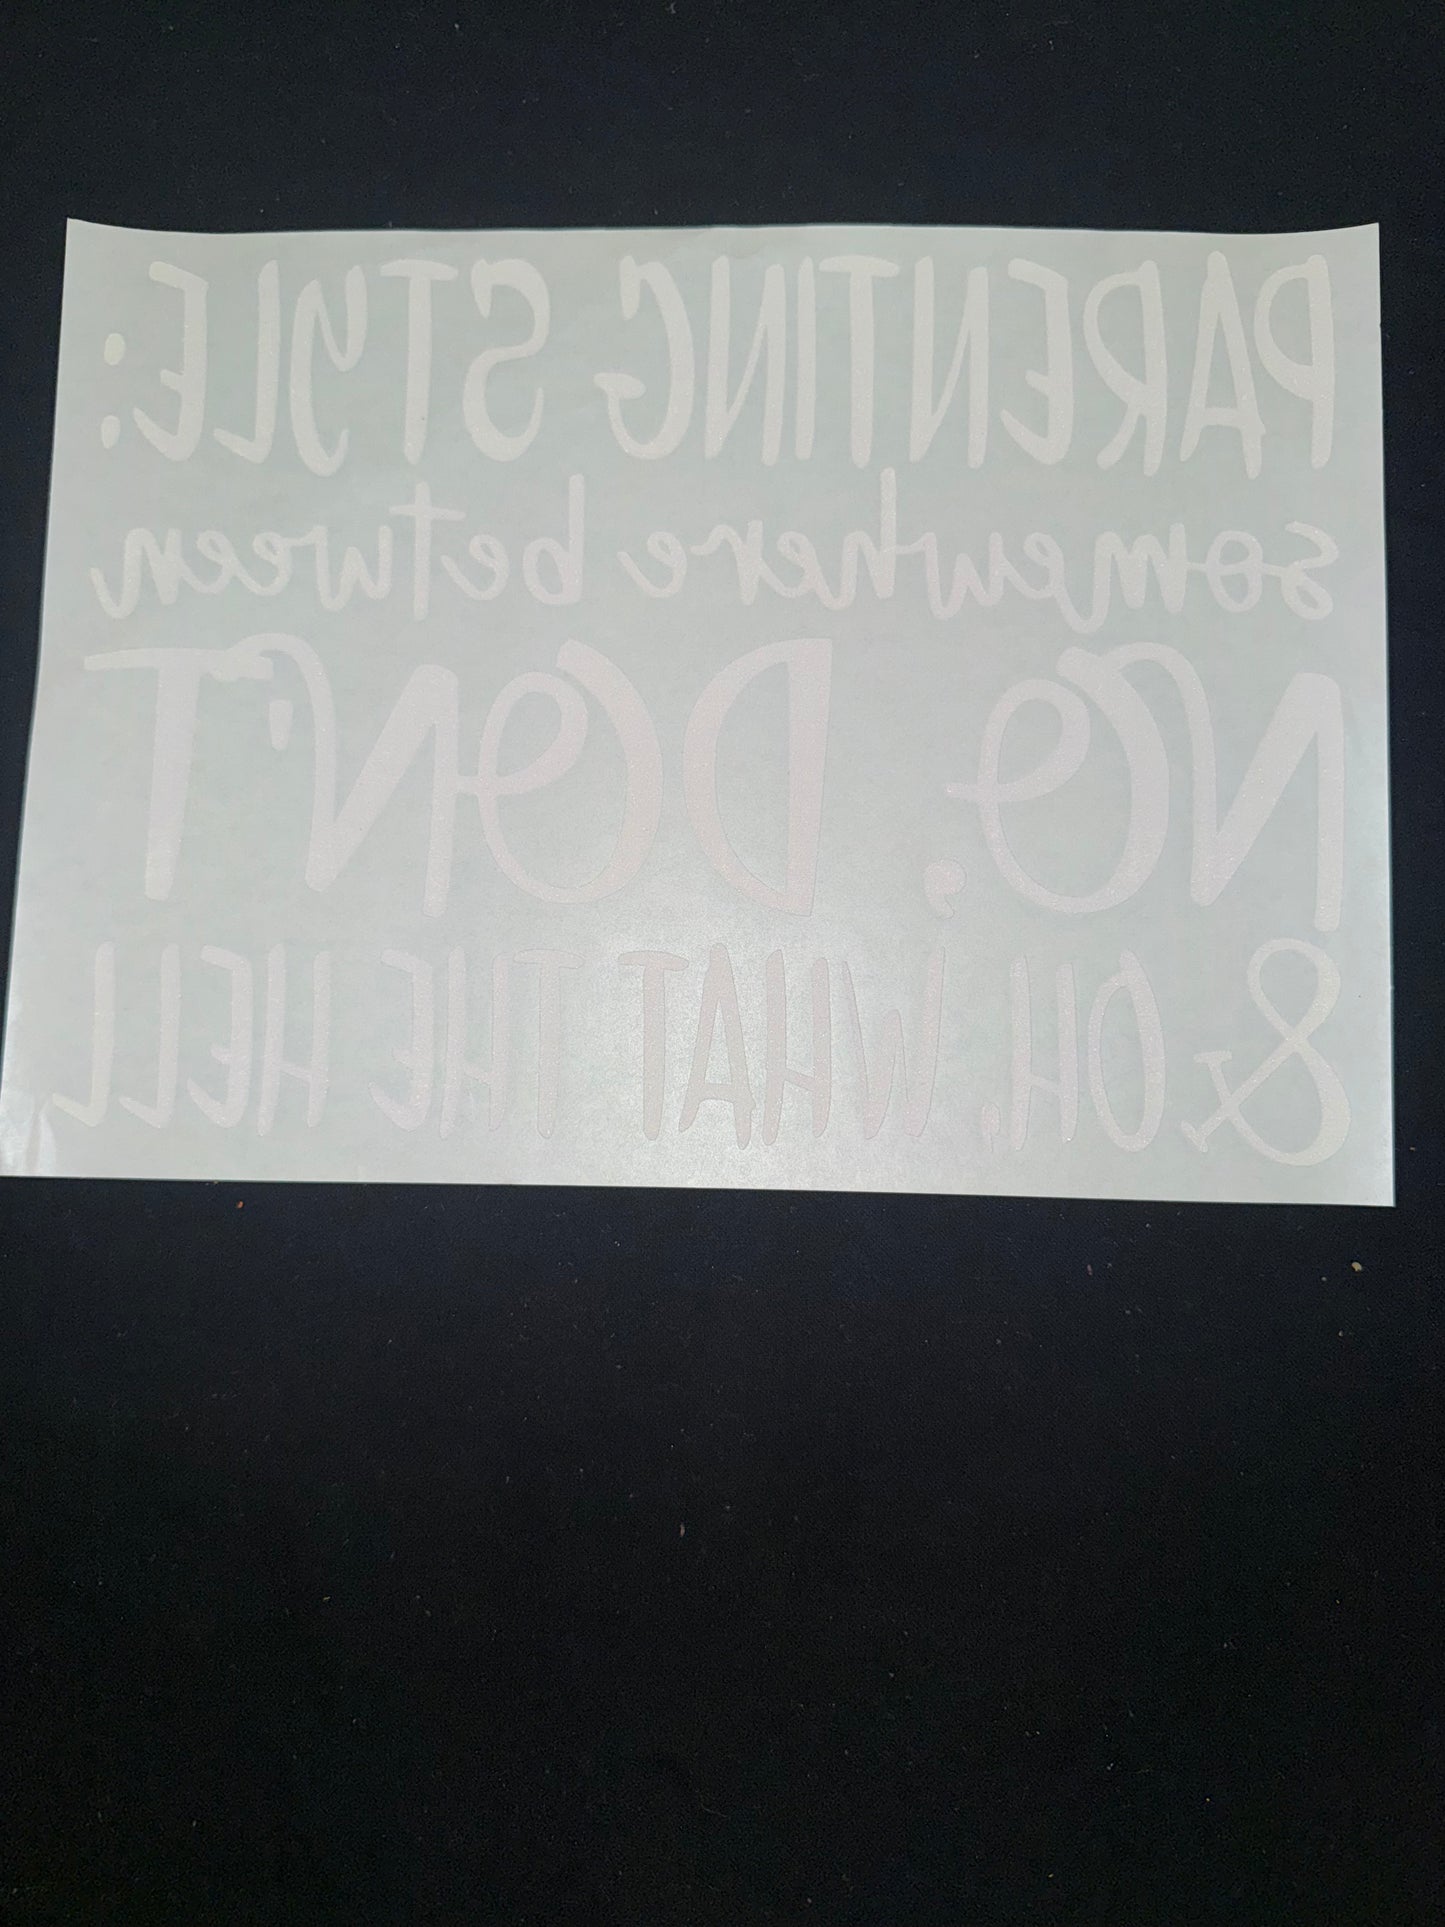 PARENTING STYLE:
somewhere between
NO, DON'T
& OH, WHAT THE HELL